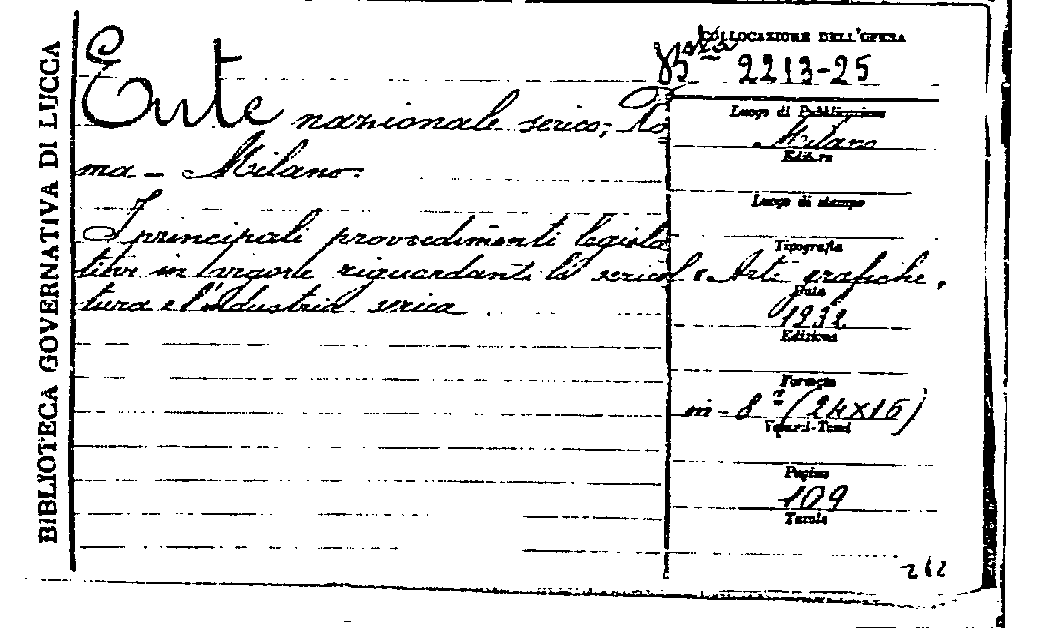 BIBLIOTECA GOVERNATIVA DI LUCCA
Ente nazionale serico, Ro
ma - Milano.
I principali provvedimenti legisla
tivi in vigore riguardanti la sericol
tura e l'industria serica
COLLOCAZIONE DELL'OPERA
2213-25
Luogo di Pubblicazione
Milano
Editore
Luogo di stampa
Tipografia
Arti grafiche
Data
1932
Edizione
Formato
in-8° (24x16)
Volumi-Tomi
Pagine
109
Tavole